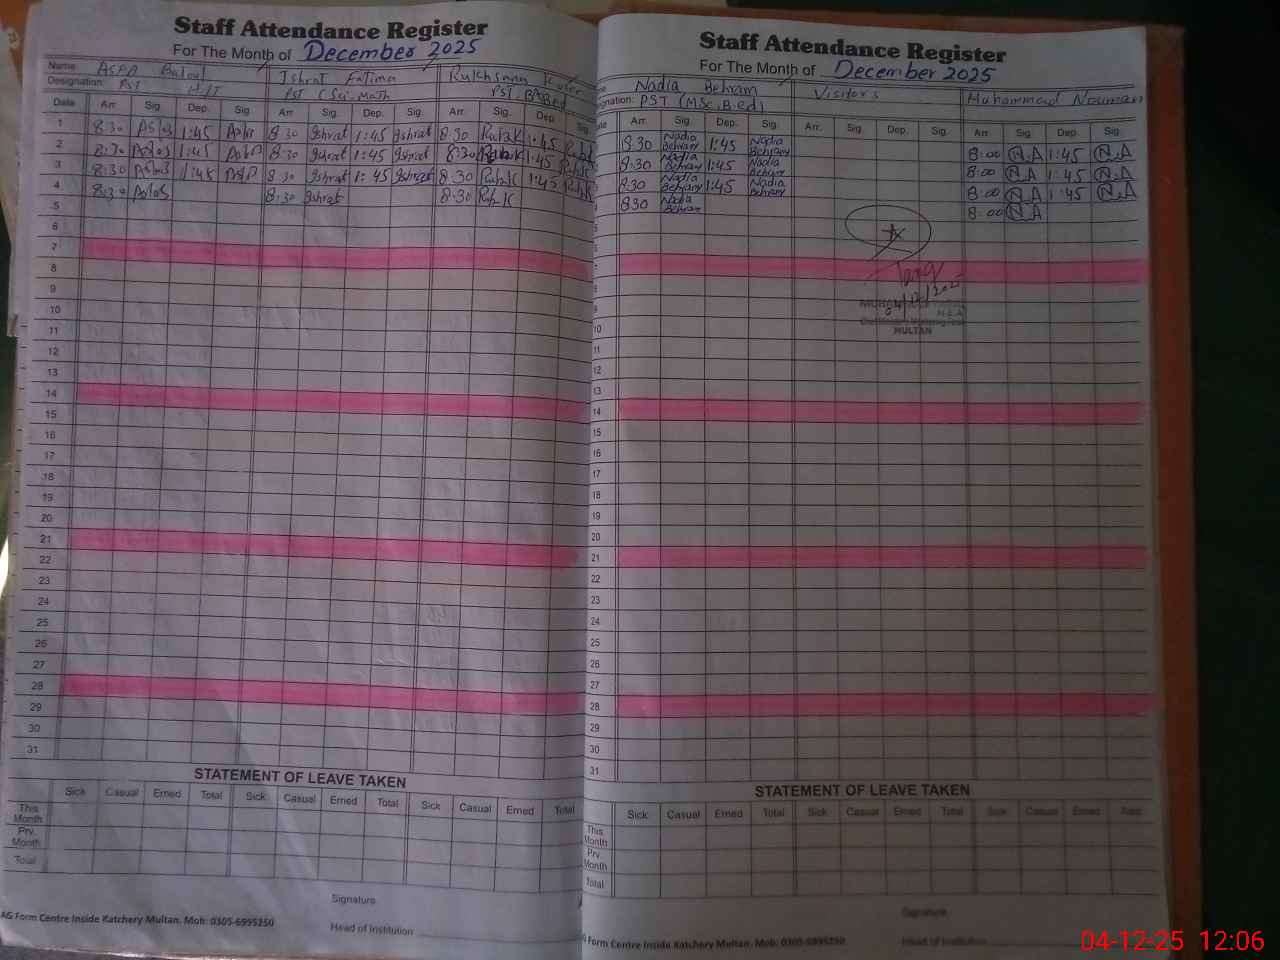 Staff Attendance Register
For The Month of December 2025
Name
Ishrat Fatima
Rukhsana
Designation: PST
PST (Sci-Math
PST, BA,Bed
Date Arr. Sig. Dep. Sig. Arr. Sig. Dep. Sig. Arr. Sig. Dep. Sig.
1 8:30 1:45 8:30 Ishrat 1:45 Ishrat 8:30 1:45
2 8:30 1:45 8:30 Ishrat 1:45 Ishrat 8:30 1:45
3 8:30 1:45 8:30 Ishrat 1:45 Ishrat 8:30 1:45
4 8:30 8:30 Ishrat 8:30
5
6
7
8
9
10
11
12
13
14
15
16
17
18
19
20
21
22
23
24
25
26
27
28
29
30
31
STATEMENT OF LEAVE TAKEN
Sick Casual Erned Total Sick Casual Erned Total Sick Casual Erned Total
This Month
Prv. Month
Total
Signature
Head of Institution
AG Form Centre Inside Katchery Multan. Mob: 0305-6995250
Staff Attendance Register
For The Month of December 2025
Nadia Behram Visitors Muhammad Nouman
PST (MSc, B.ed)
Arr. Sig. Dep. Sig. Arr. Sig. Dep. Sig. Arr. Sig. Dep. Sig.
8:30 Nadia Behram 1:45 Nadia Behram 8:00 N.A 1:45 N.A
8:30 Nadia Behram 1:45 Nadia Behram 8:00 N.A 1:45 N.A
8:30 Nadia Behram 1:45 Nadia Behram 8:00 N.A 1:45 N.A
830 Nadia Behram 8:00 N.A
5
6
7
8
9
10
11
12
13
14
15
16
17
18
19
20
21
22
23
24
25
26
27
28
29
30
31
04/12/2025
MULTAN
STATEMENT OF LEAVE TAKEN
Sick Casual Erned Total Sick Casual Erned Total Sick Casual Erned Total
This Month
Prv. Month
Total
Signature
Head of Institution
Form Centre Inside Katchery Multan. Mob: 0305-6995250
04-12-25 12:06